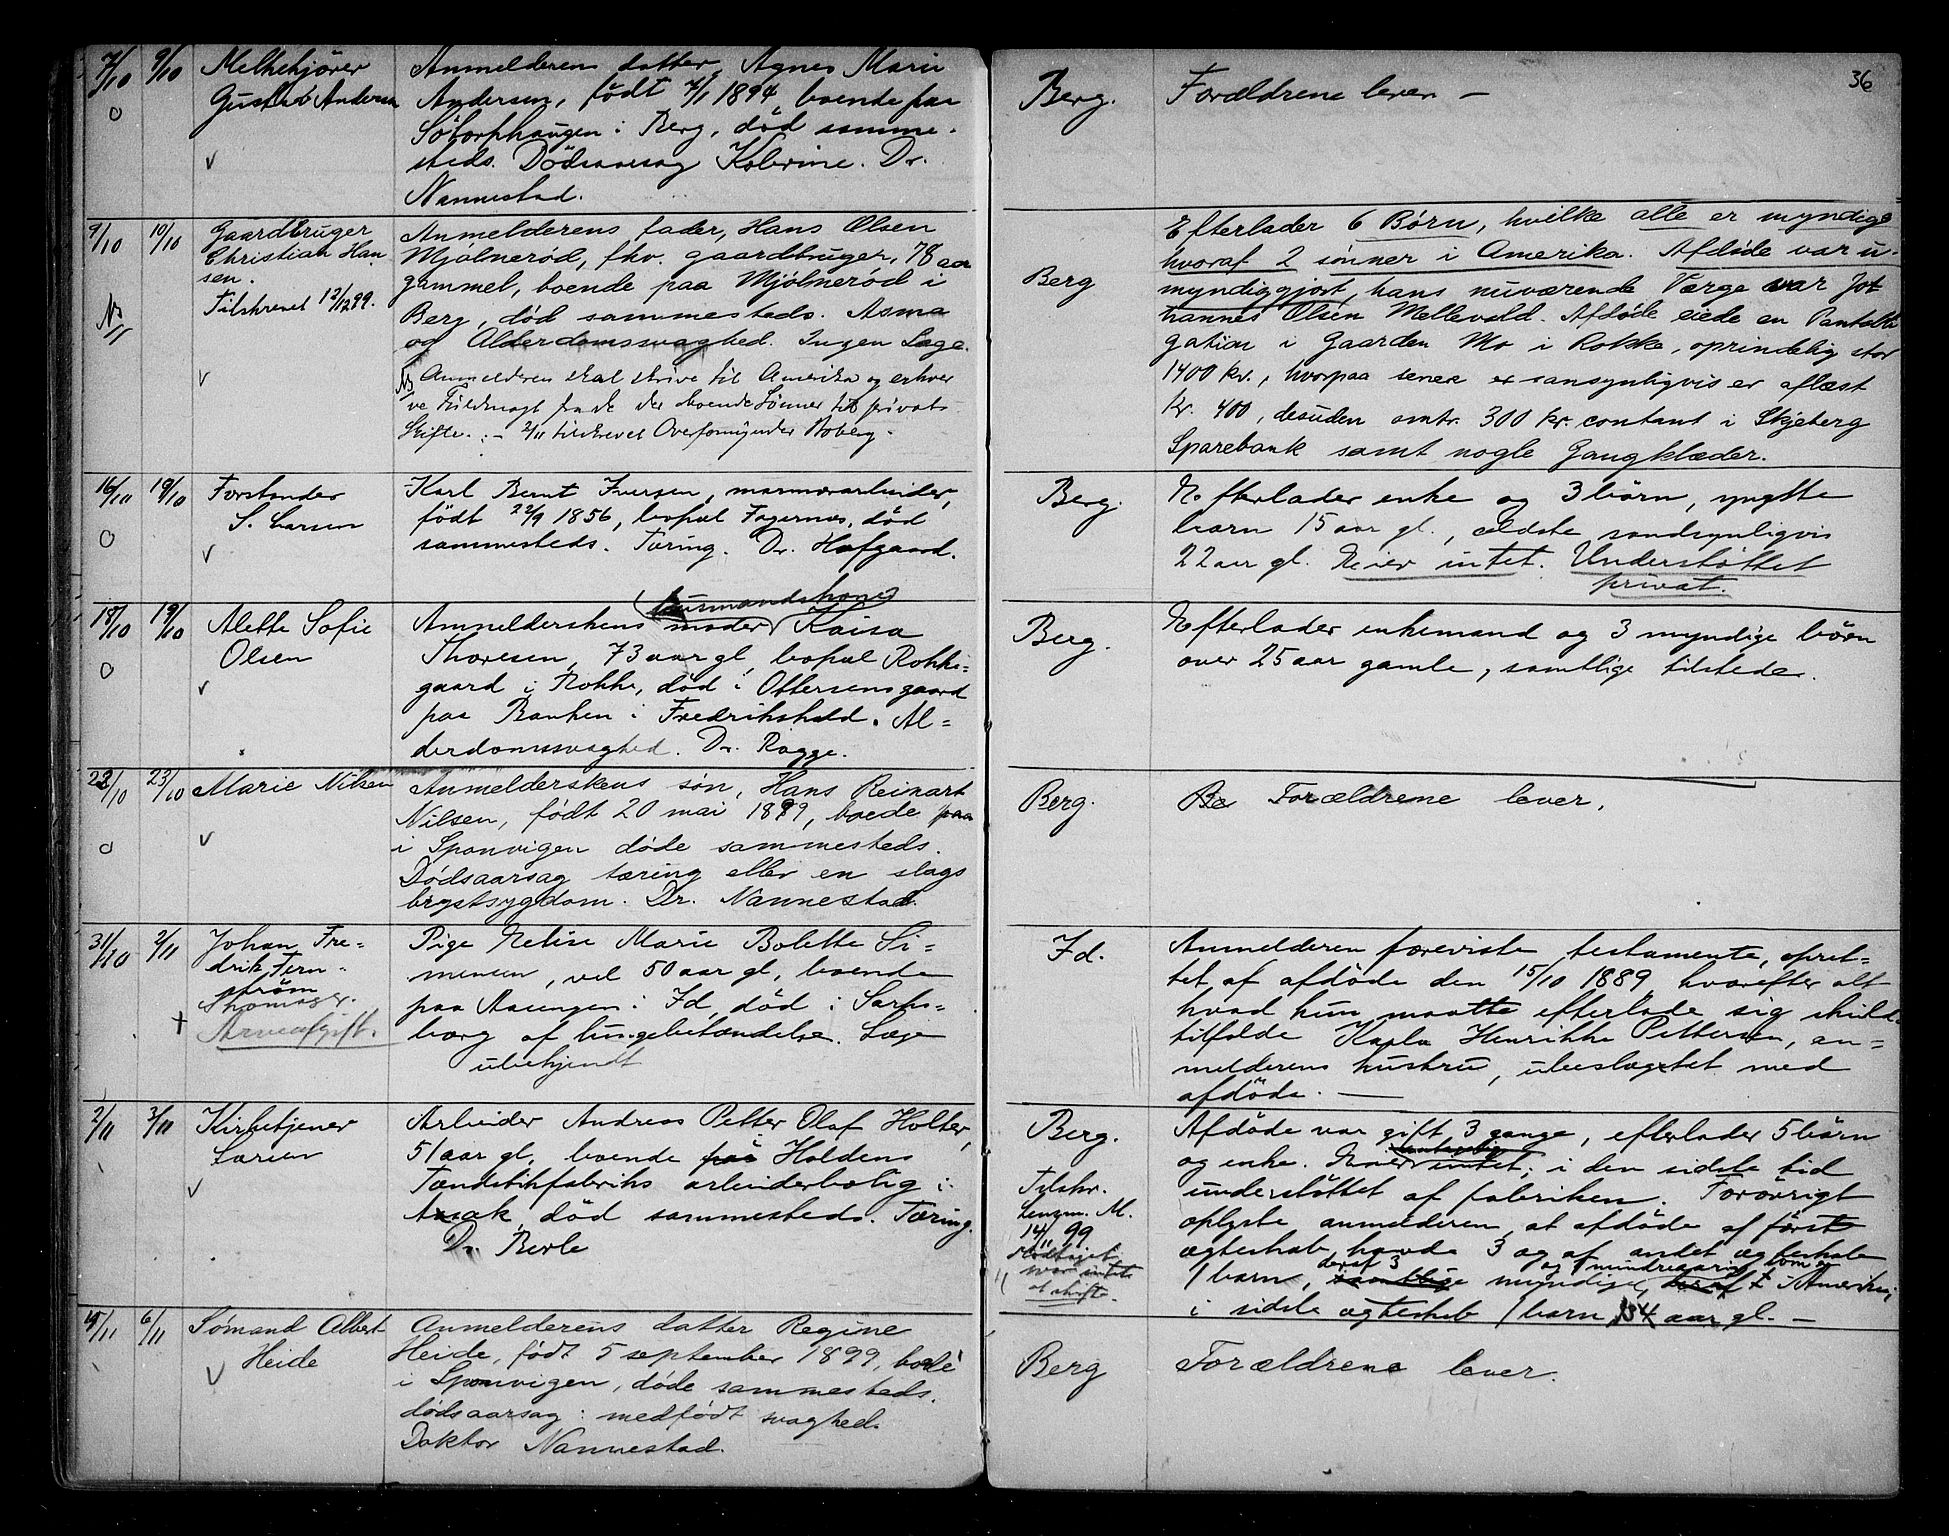 36
7/10 9/10 Melkekjörer
Gustav Andersen
Anmelderens datter, Agnes Marie
Andersen, födt 7/1 1894, boende paa
Sötorphaugen i Berg, död samme-
steds. Dödsaarsag Kolerine. Dr.
Nannestad.
Berg. Forældrene lever -
9/10 10/10 Gaardbruger
Christian Han
sen.
Tilskrevet 12/12 99.
NB
Anmelderens fader, Hans Olsen
Mjölneröd, fhv. gaardbruger, 78 aar
gammel, boende paa Mjölneröd i
Berg, död sammesteds. Asma
og Alderdomssvaghed. Ingen Læge.
NB Anmelderen skal skrive til Amerika og erhver
ve Fuldmagt fra de der boende Sönner til privat
Skifte. :- 2/11 tilskrevet Overformynder Moberg.
Berg
Efterlader 6 Börn, hvilke alle er myndige
hvoraf 2 sönner i Amerika. Afdöde var u-
myndiggjort, hans nuværende Værge var Jo
hannes Olsen Mellevold. Afdöde eiede en Pantobli
gation i Gaarden Mo i Rokke, oprindelig stor
1400 kr., hvorpaa senere er sansynligvis er aflæst
Kr. 400, desuden omtr. 300 kr. contant i Skjeberg
Sparebank samt nogle Gangklæder.
16/10 19/10 Forstander
S. Larsen
Karl Bernt Iversen, marmorarbeider,
födt 22/9 1856, bopæl Fagernæs, död
sammesteds. Tæring. Dr. Hofgaard.
Berg.
Efterlader enke og 3 börn, yngste
barn 15 aar gl., ældste sandsynligvis
22 aar gl. Eier intet. Understöttet
privat.
18/10 19/10 Alette Sofie
Olsen
(husmandskone)
Anmelderskens moder Kaisa
Thoresen, 73 aar gl, bopæl Rokke-
gaard i Rokke, död i Ottersensgaard
paa Banken i Fredrikshald. Al-
derdomssvaghed. Dr. Rogge.
Berg.
Efterlader enkemand og 3 myndige börn
over 25 aar gamle, samtlige tilstede.
22/10 23/10 Marie Nilsen
Anmelderskens sön, Hans Reinart
Nilsen, födt 20 mai 1899, boede paa
i Sponvigen döde sammesteds.
Dödsaarsag tæring eller en slags
brystsygdom. Dr. Nannestad.
Berg.
Be Forældrene lever.
31/10 2/11 Johan Fre-
drik Fern-
ström
Skomager.
Arveafgift.
Pige Neline Marie Bolette Si-
mensen, vel 50 aar gl, boende
paa Aasengen i Id, död i Sarps-
borg af lungebetændelse. Læge
ubekjendt
Id.
Anmelderen foreviste testamente, opret-
tet af afdöde den 15/10 1889, hvorefter alt
hvad hun maatte efterlade sig skulde
tilfalde Karla Henrikke Pettersen, an-
melderens hustru, ubeslægtet med
afdöde. -
2/11 3/11 Kirketjener
Larsen
Arbeider Andreas Petter Olaf Holter,
51 aar gl, boende paa Haldens
Tændstikfabriks arbeiderbolig i
Asak, död sammesteds. Tæring.
Dr. Berle
Berg.
Tilskr.
Lensm. M.
14/11 99
var intet
at skifte.
Afdöde var gift 3 gange, efterlader 5 börn
og enke. Eier intet; i den sidste tid
understöttet af fabriken. Forövrigt
oplyste anmelderen, at afdöde af förste
ægteskab havde 3 og af andet ægteskab
1 barn, samtlige myndige, i Amerika;
deraf 3 og 1 mindreaarig som er
i sidste ægteskab 1 barn, 4 aar gl. -
4/11 6/11 Sömand Albert
Heide
Anmelderens datter Regine
Heide, födt 5 september 1899, boede
i Sponvigen, döde sammesteds.
dödsaarsag: medfödt svaghed.
Doktor Nannestad.
Berg
Forældrene lever.